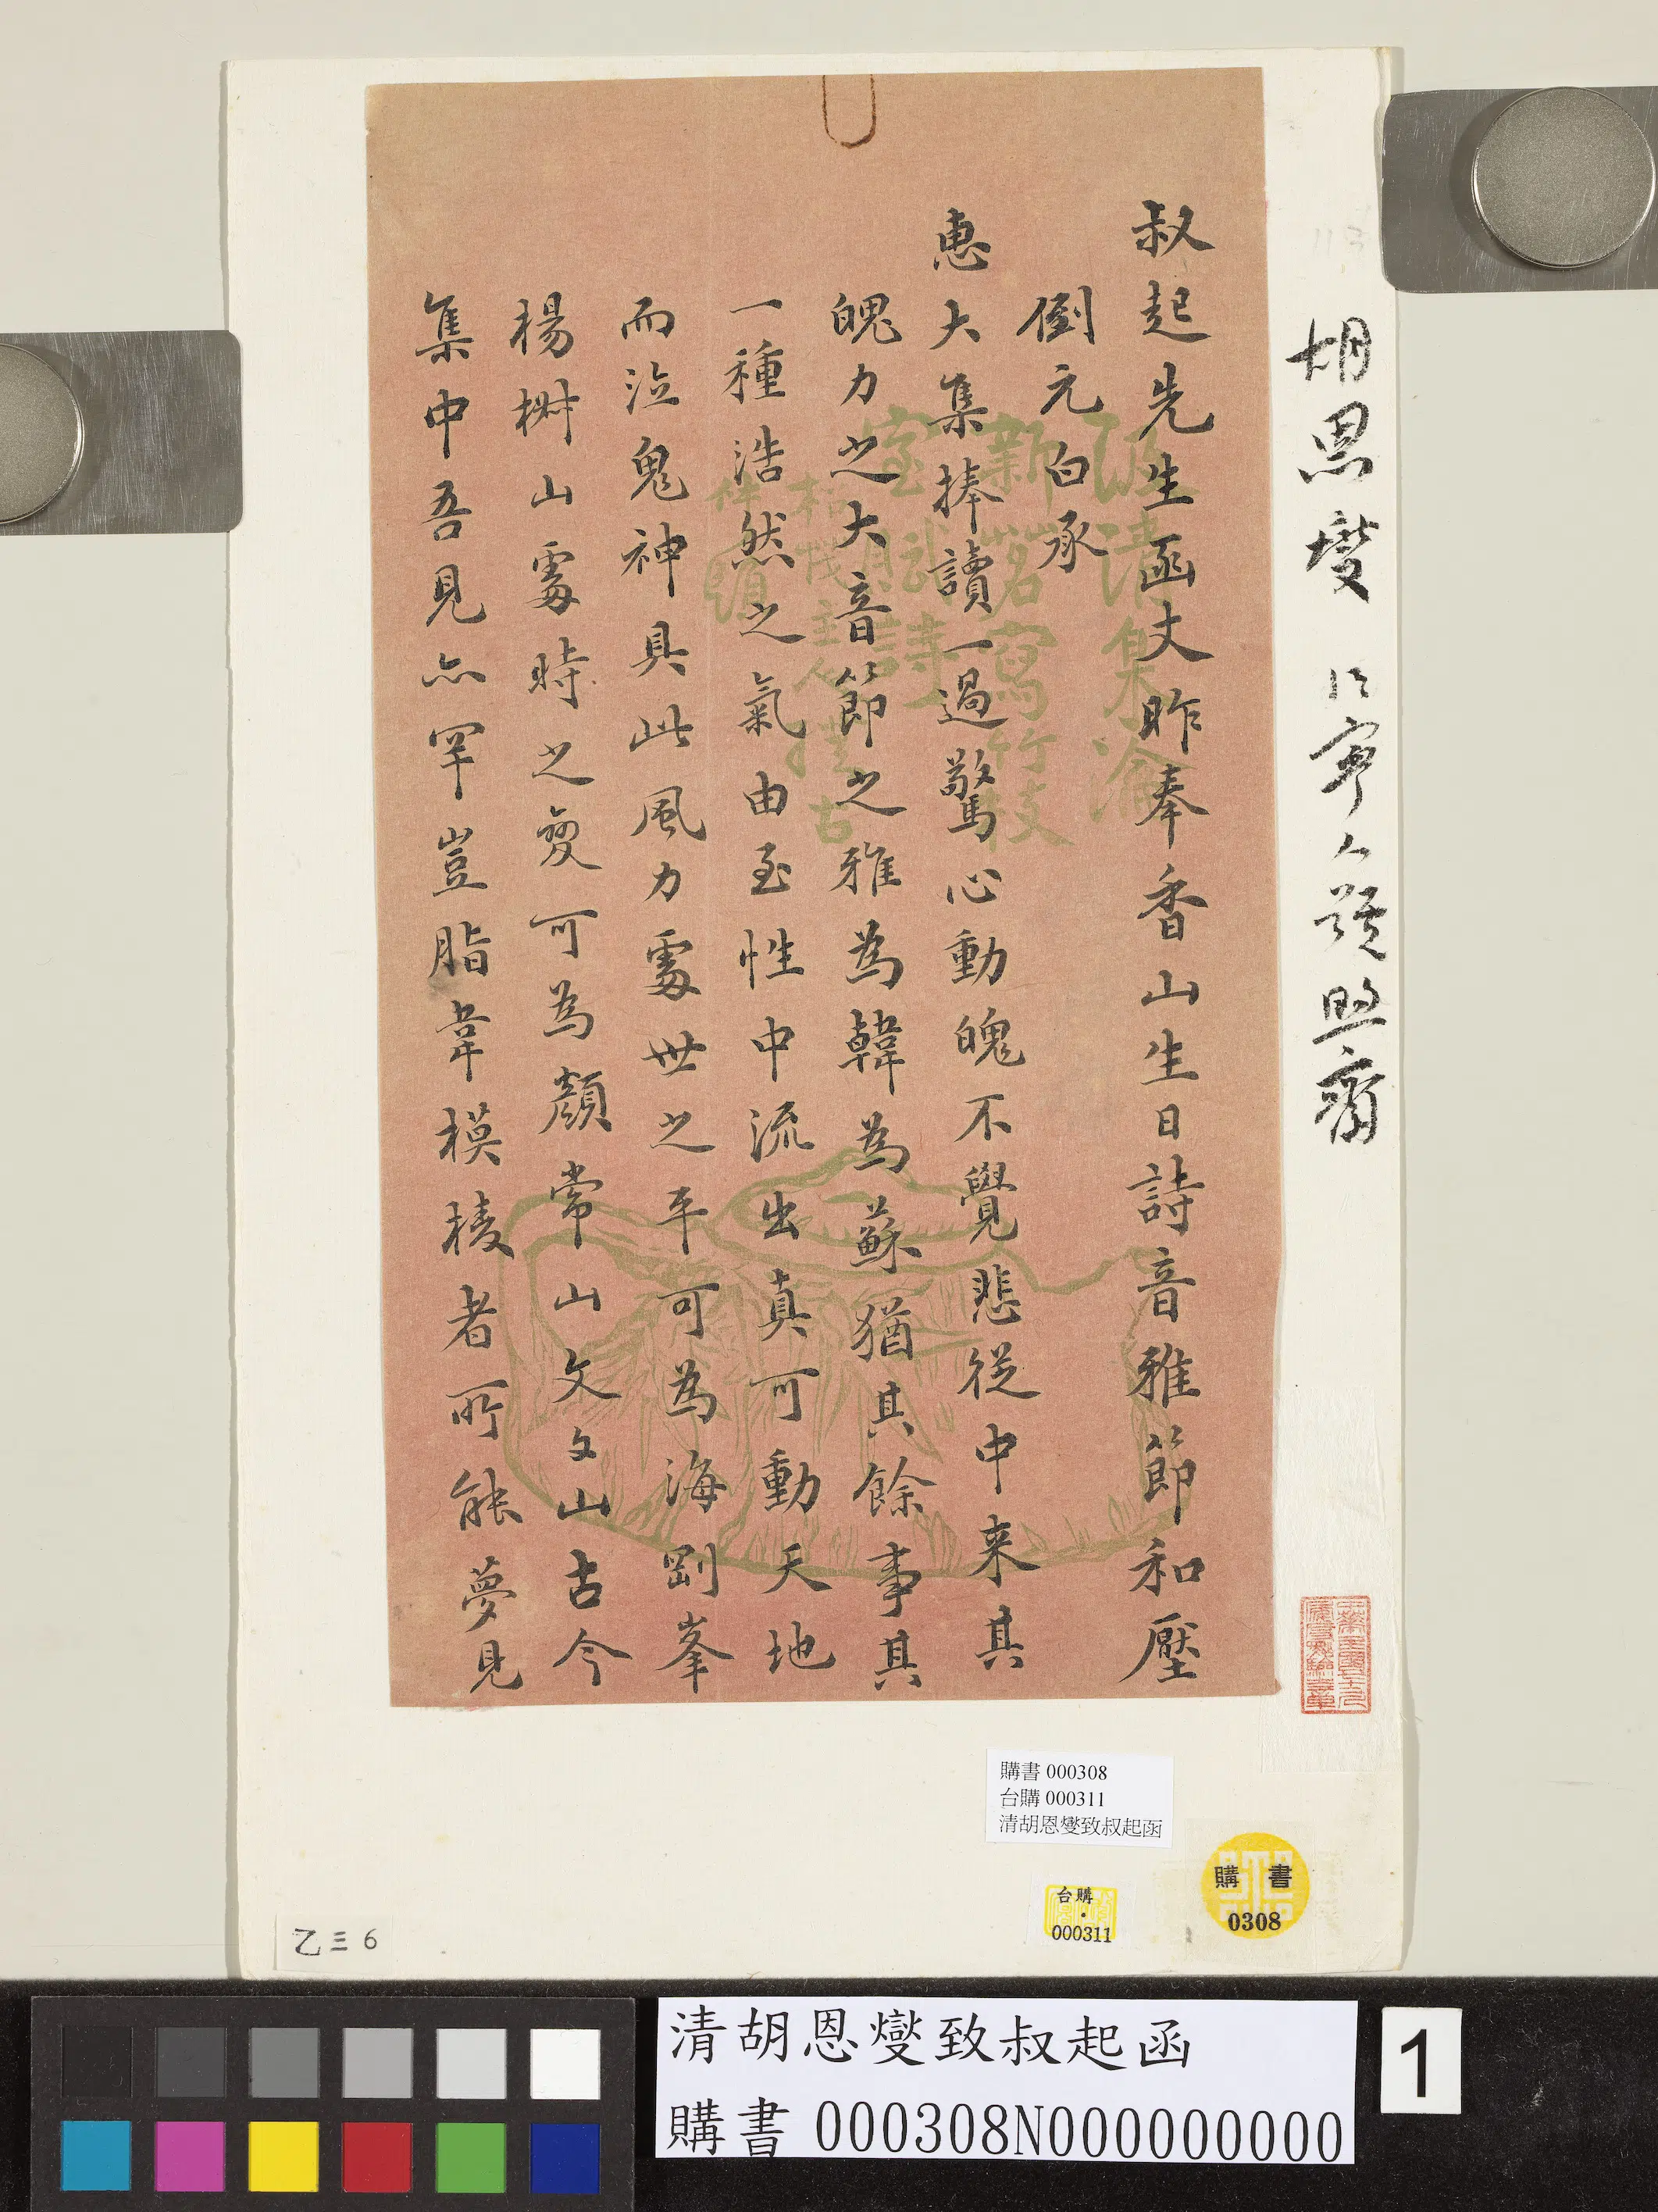 叔起先生函丈昨奉香山生日詩音雅節和壓
倒元白承
惠大集捧讀一過驚心動魄不覺悲從中来其
魄力之大音節之雅為韓為蘇猶其餘事其
一種浩然之氣由至性中流出真可動天地
而泣鬼神具此風力處世之平可為海剛峯
楊椒山處時之變可為顏常山文文山古今
集中吾見亦罕豈脂韋模棱者所能夢見
胡恩燮 江寧人 號煦齋
購書 000308
台購 000311
清胡恩燮致叔起函
購書
0308
台購
000311
乙三6
清胡恩燮致叔起函
購書 000308N000000000
1